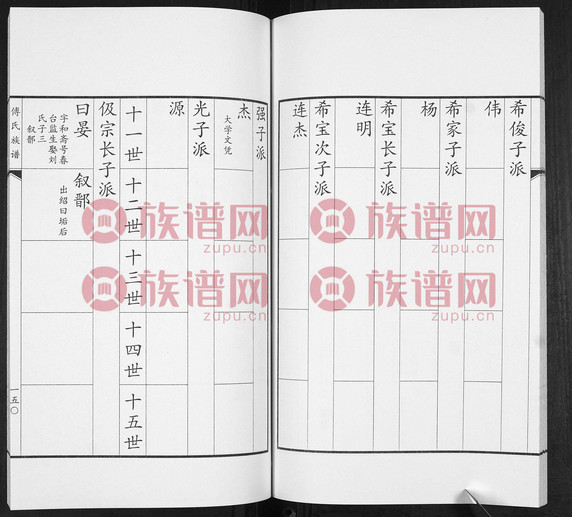 希俊子派
伟
希家子派
杨
希宝长子派
连明
希宝次子派
连杰
强子派
杰
大学文凭
光子派
源
十一世 十二世 十三世 十四世 十五世
伋宗长子派
曰晏 叙鄑
字和斋号春
台监生娶刘
氏子三
叙鄑
出绍曰垢后
傅氏族谱
一五〇
族谱网
zupu.cn
族谱网
zupu.cn
族谱网
zupu.cn
族谱网
zupu.cn